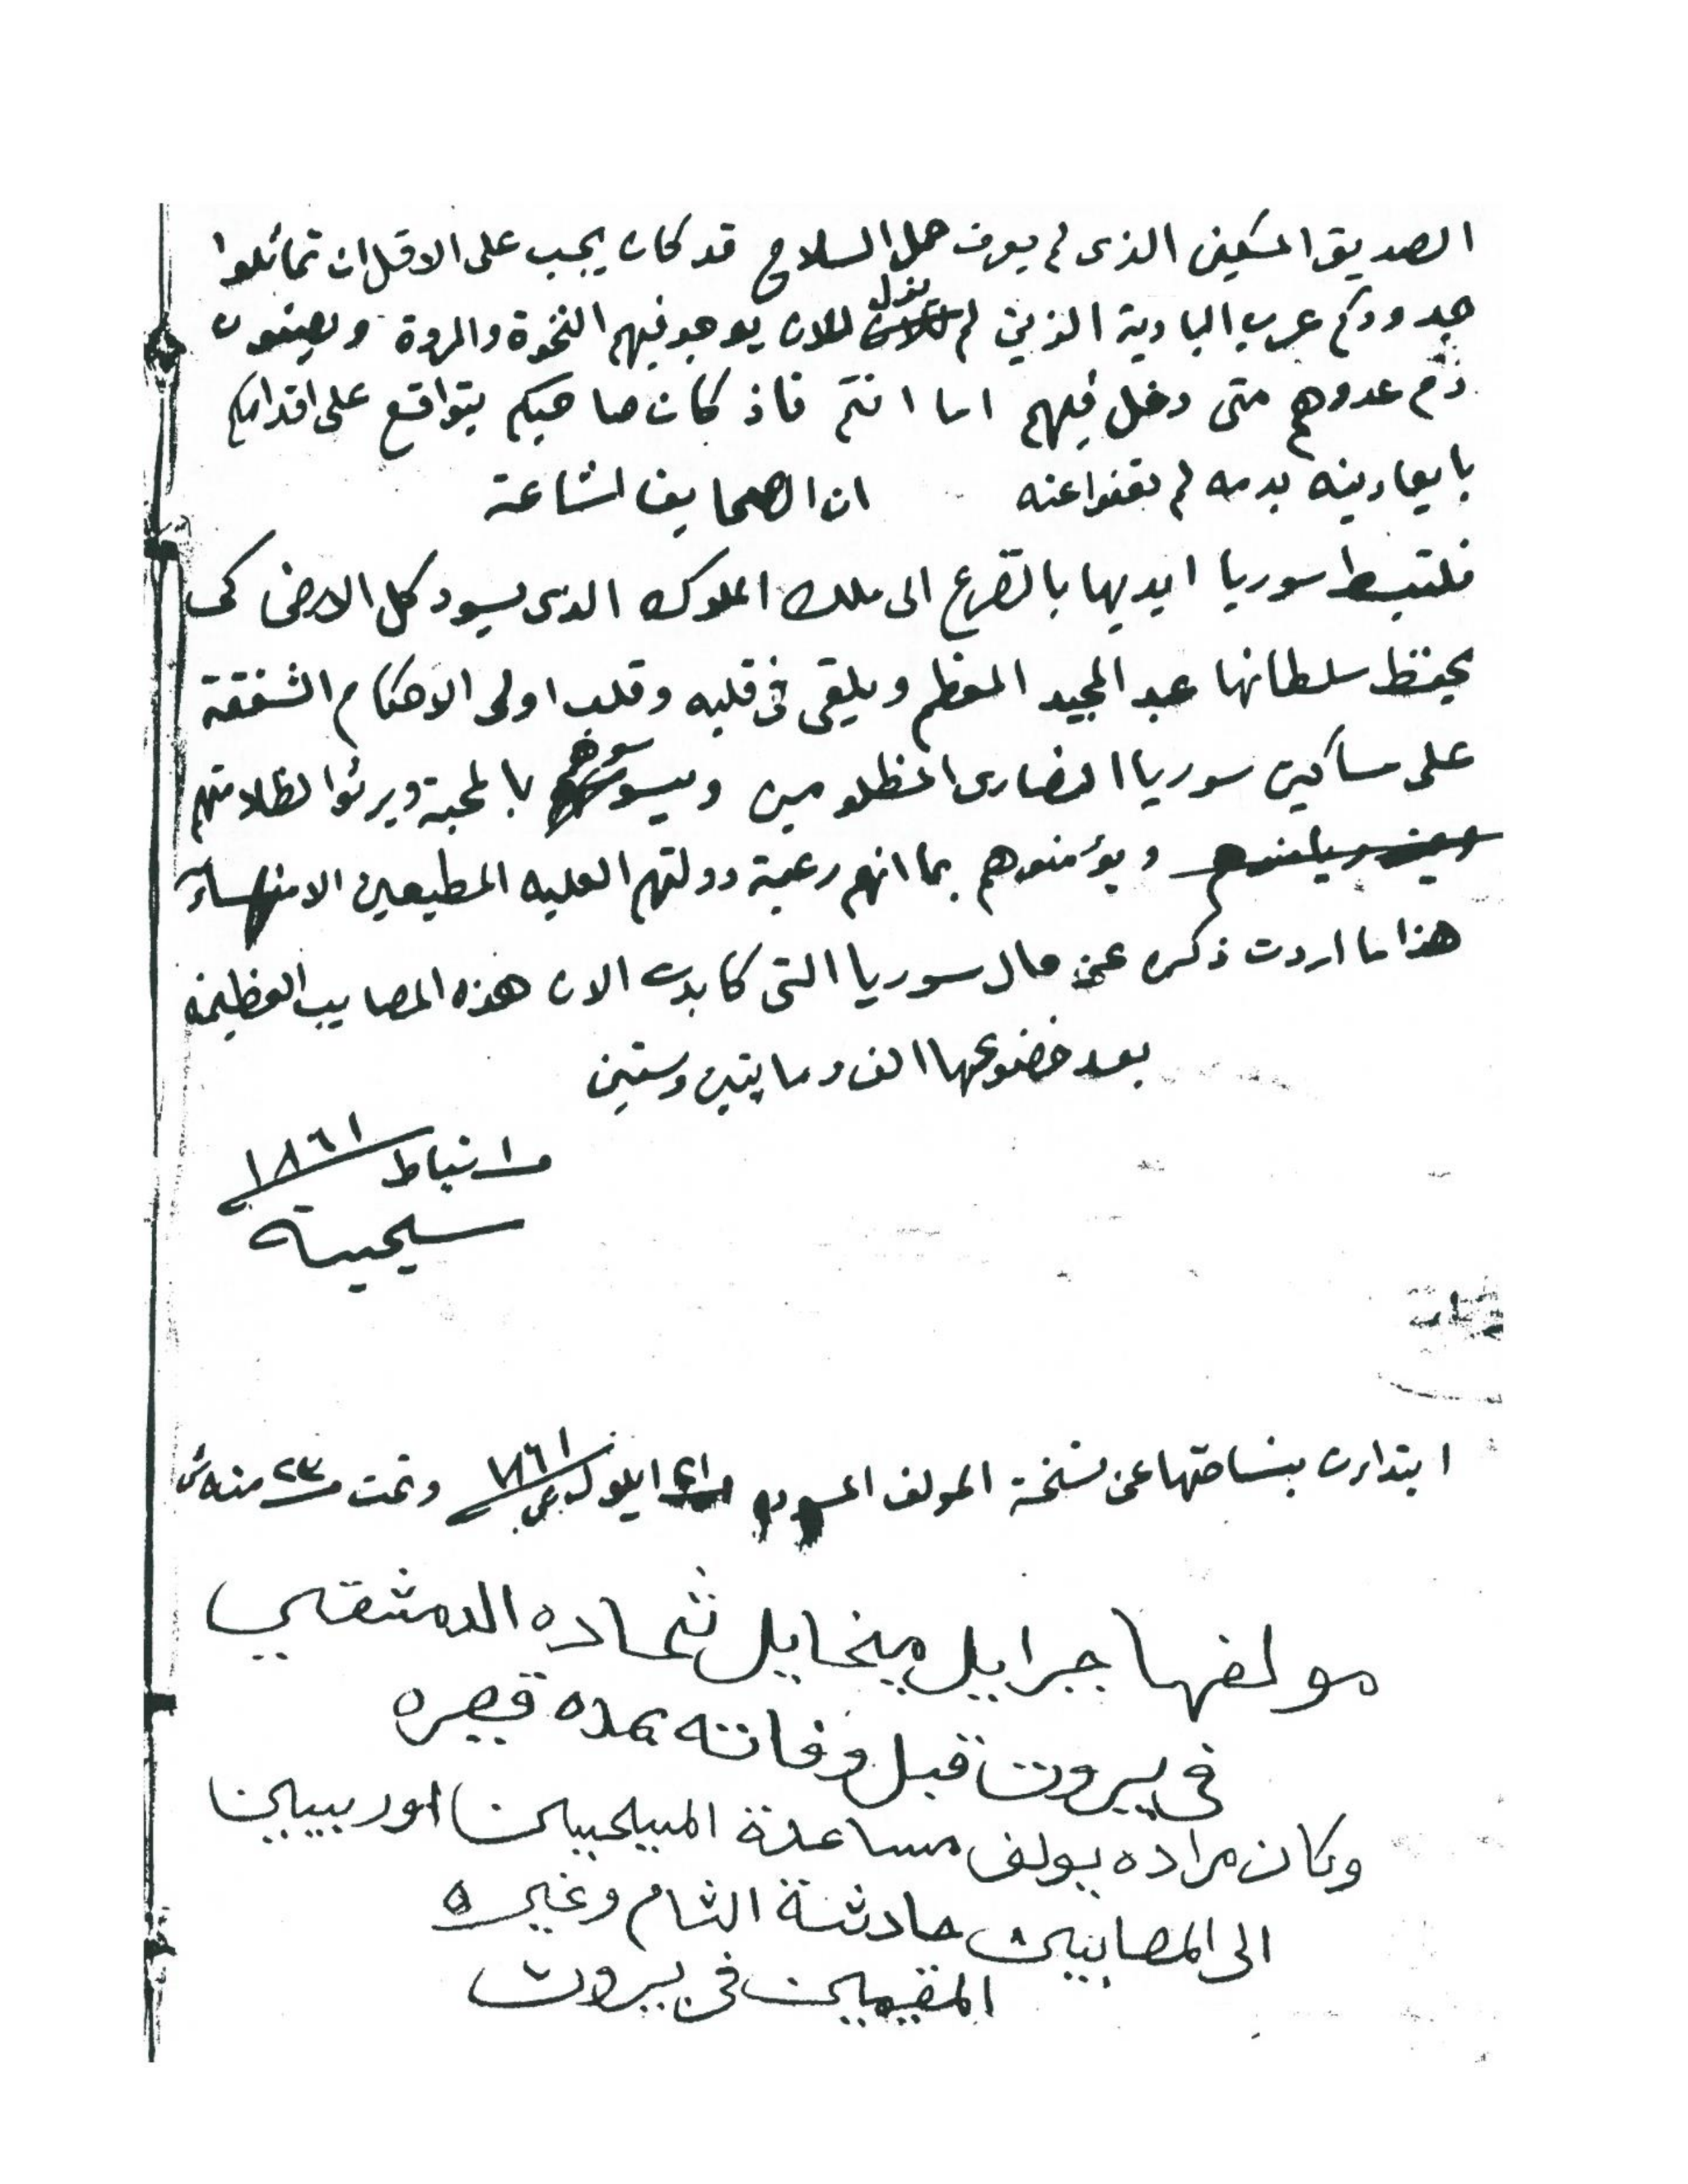 الصديق المسكين الذى لم يعرف حمل السلاح قد كان يجب على الاقل ان تماثلوا
جدودكم عرب البادية الذين لم يزل للان يوجد فيهم النخوة والمروة ويصيغون
ذم عدوهم متى دخل فيهم اما انتم فاذ كان صاحبكم يتواقع على اقدامكم
بايعادينه بدمه لم تعفوا عنه ان الصحايف لشاعة
فلتبسط سوريا ايديها بالتضرع الى ملك الملوك الذى يسود كل الارض كى
يحفظ سلطانها عبد المجيد المعظم ويلقى فى قلبه وقلب اولى الاحكام الشفقة
على مساكين سوريا النصارى المظلومين ويسوسوهم بالمحبة ويرثوا لظلامتهم
ويؤمنوهم بما انهم رعية دولتهم العليه المطيعين الامنهسا
هذا ما اردت ذكره عن حال سوريا التى كابدت الان هذه المصايب العظيمه
بعد خضوعها الف ومايتين وستين
شباط ١٨٦١
مسيحية
ابتدات بنساختها عن نسخة المولف ايلول ١٨٦١ وتمت ٢٣ منه
مولفها جبرايل ميخايل شحاده الدمشقي
في بيروت قبل وفاته بمده قصيره
وكان مراده يولف مساعدة المسيحيين اوربيين
الى المصابين حادثة الشام وغيره
المقيمين في بيروت